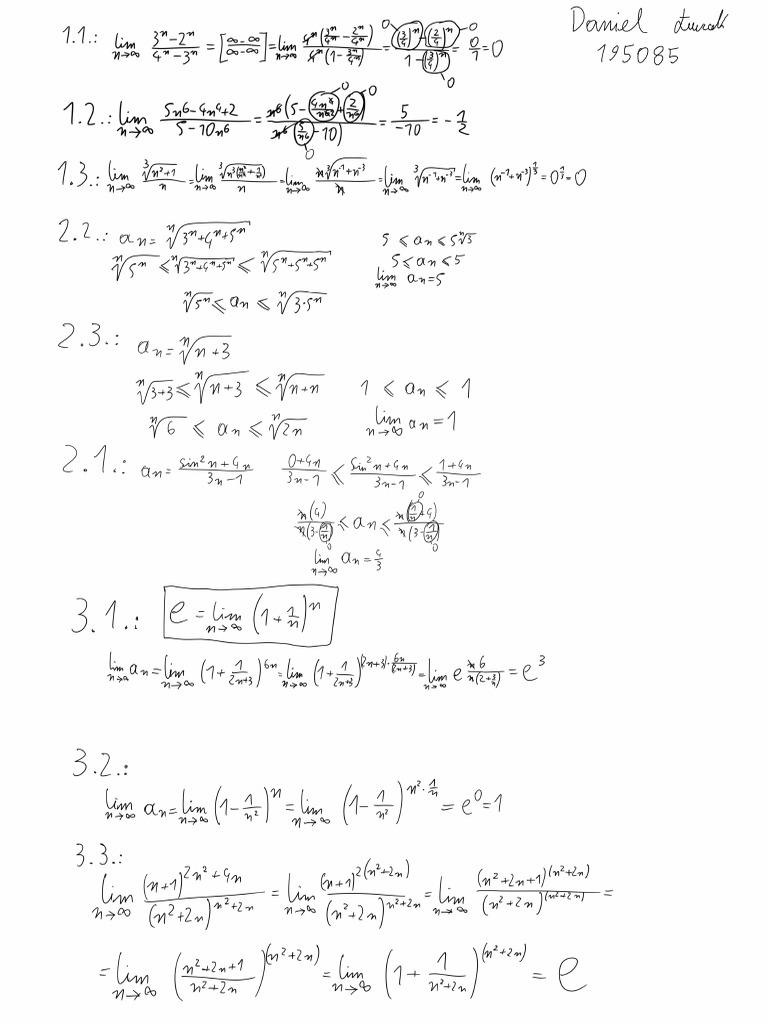 Daniel
195085
1.1.: lim n→∞ (3^n-2^n)/(4^n-3^n) = [(∞-∞)/(∞-∞)] = lim n→∞ (4^n(3^n/4^n - 2^n/4^n))/(4^n(1-3^n/4^n)) = ((3/4)^n - (2/4)^n)/(1-(3/4)^n) = 0/1 = 0
1.2.: lim n→∞ (5n^6-4n^4+2)/(5-10n^6) = (n^6(5 - 4n^4/n^6 + 2/n^6))/(n^6(5/n^6 - 10)) = 5/-10 = -1/2
1.3.: lim n→∞ ∛(n^2+1)/n = lim n→∞ ∛(n^3(n^2/n^3+1/n^3))/n = lim n→∞ n∛(n^-1+n^-3)/n = lim n→∞ ∛(n^-1+n^-3) = lim n→∞ (n^-1+n^-3)^(1/3) = 0^(1/3) = 0
2.2.: an = ⁿ√(3^n+4^n+5^n) 5 ≤ an ≤ 5ⁿ√3
ⁿ√(5^n) ≤ ⁿ√(3^n+4^n+5^n) ≤ ⁿ√(5^n+5^n+5^n) 5 ≤ an ≤ 5
lim n→∞ an = 5
ⁿ√(5^n) ≤ an ≤ ⁿ√(3·5^n)
2.3.: an = ⁿ√(n+3)
ⁿ√(3+3) ≤ ⁿ√(n+3) ≤ ⁿ√(n+n) 1 ≤ an ≤ 1
ⁿ√6 ≤ an ≤ ⁿ√(2n) lim n→∞ an = 1
2.1.: an = (sin^2 n+4n)/(3n-1) (0+4n)/(3n-1) ≤ (sin^2 n+4n)/(3n-1) ≤ (1+4n)/(3n-1)
n(4)/(n(3-1/n)) ≤ an ≤ n(1/n+4)/(n(3-1/n))
lim n→∞ an = 4/3
3.1.: e = lim n→∞ (1+1/n)^n
lim n→∞ an = lim n→∞ (1+1/(2n+3))^(6n) = lim n→∞ (1+1/(2n+3))^((2n+3)·6n/(2n+3)) = lim n→∞ e^(n6/(n(2+3/n))) = e^3
3.2.:
lim n→∞ an = lim n→∞ (1-1/n^2)^n = lim n→∞ (1-1/n^2)^(n^2·1/n) = e^0 = 1
3.3.:
lim n→∞ (n+1)^(2n^2+4n)/(n^2+2n)^(n^2+2n) = lim n→∞ (n+1)^(2(n^2+2n))/(n^2+2n)^(n^2+2n) = lim n→∞ (n^2+2n+1)^(n^2+2n)/(n^2+2n)^(n^2+2n) =
= lim n→∞ ((n^2+2n+1)/(n^2+2n))^(n^2+2n) = lim n→∞ (1+1/(n^2+2n))^(n^2+2n) = e